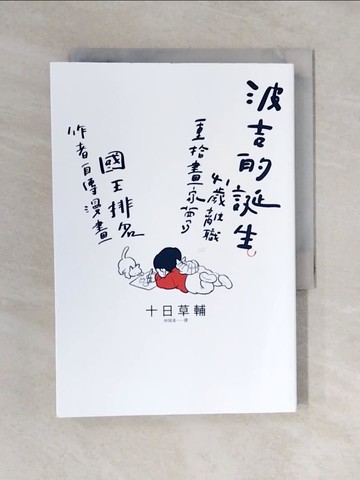 波吉的誕生
41歲離職
重拾畫家夢
國王排名
作者自傳漫畫
十日草輔